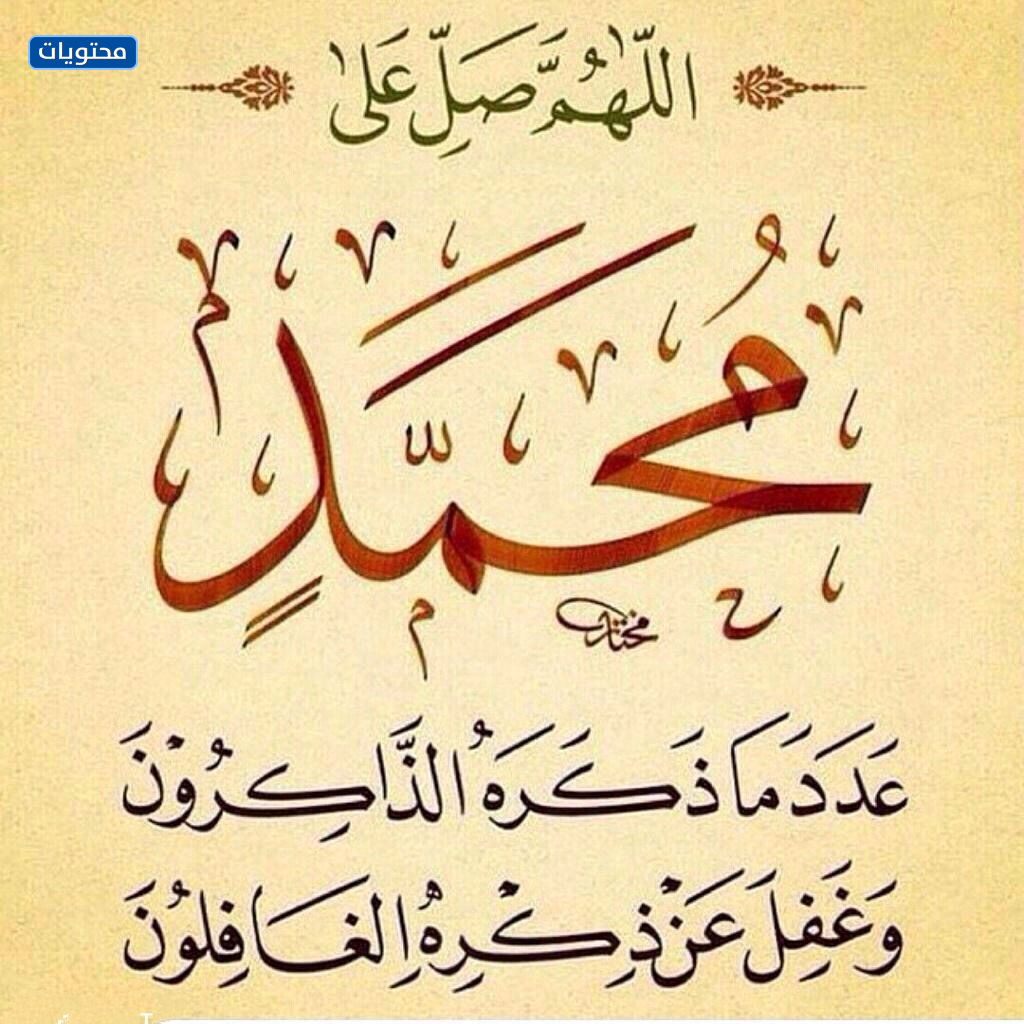 محتويات
اللّهُمَّ صَلِّ عَلى
مُحَمَّدٍ
مختار
عَدَدَ مَا ذَكَرَهُ الذَّاكِرُوْنَ
وَغَفِلَ عَنْ ذِكْرِهُ الغَافِلُوْنَ